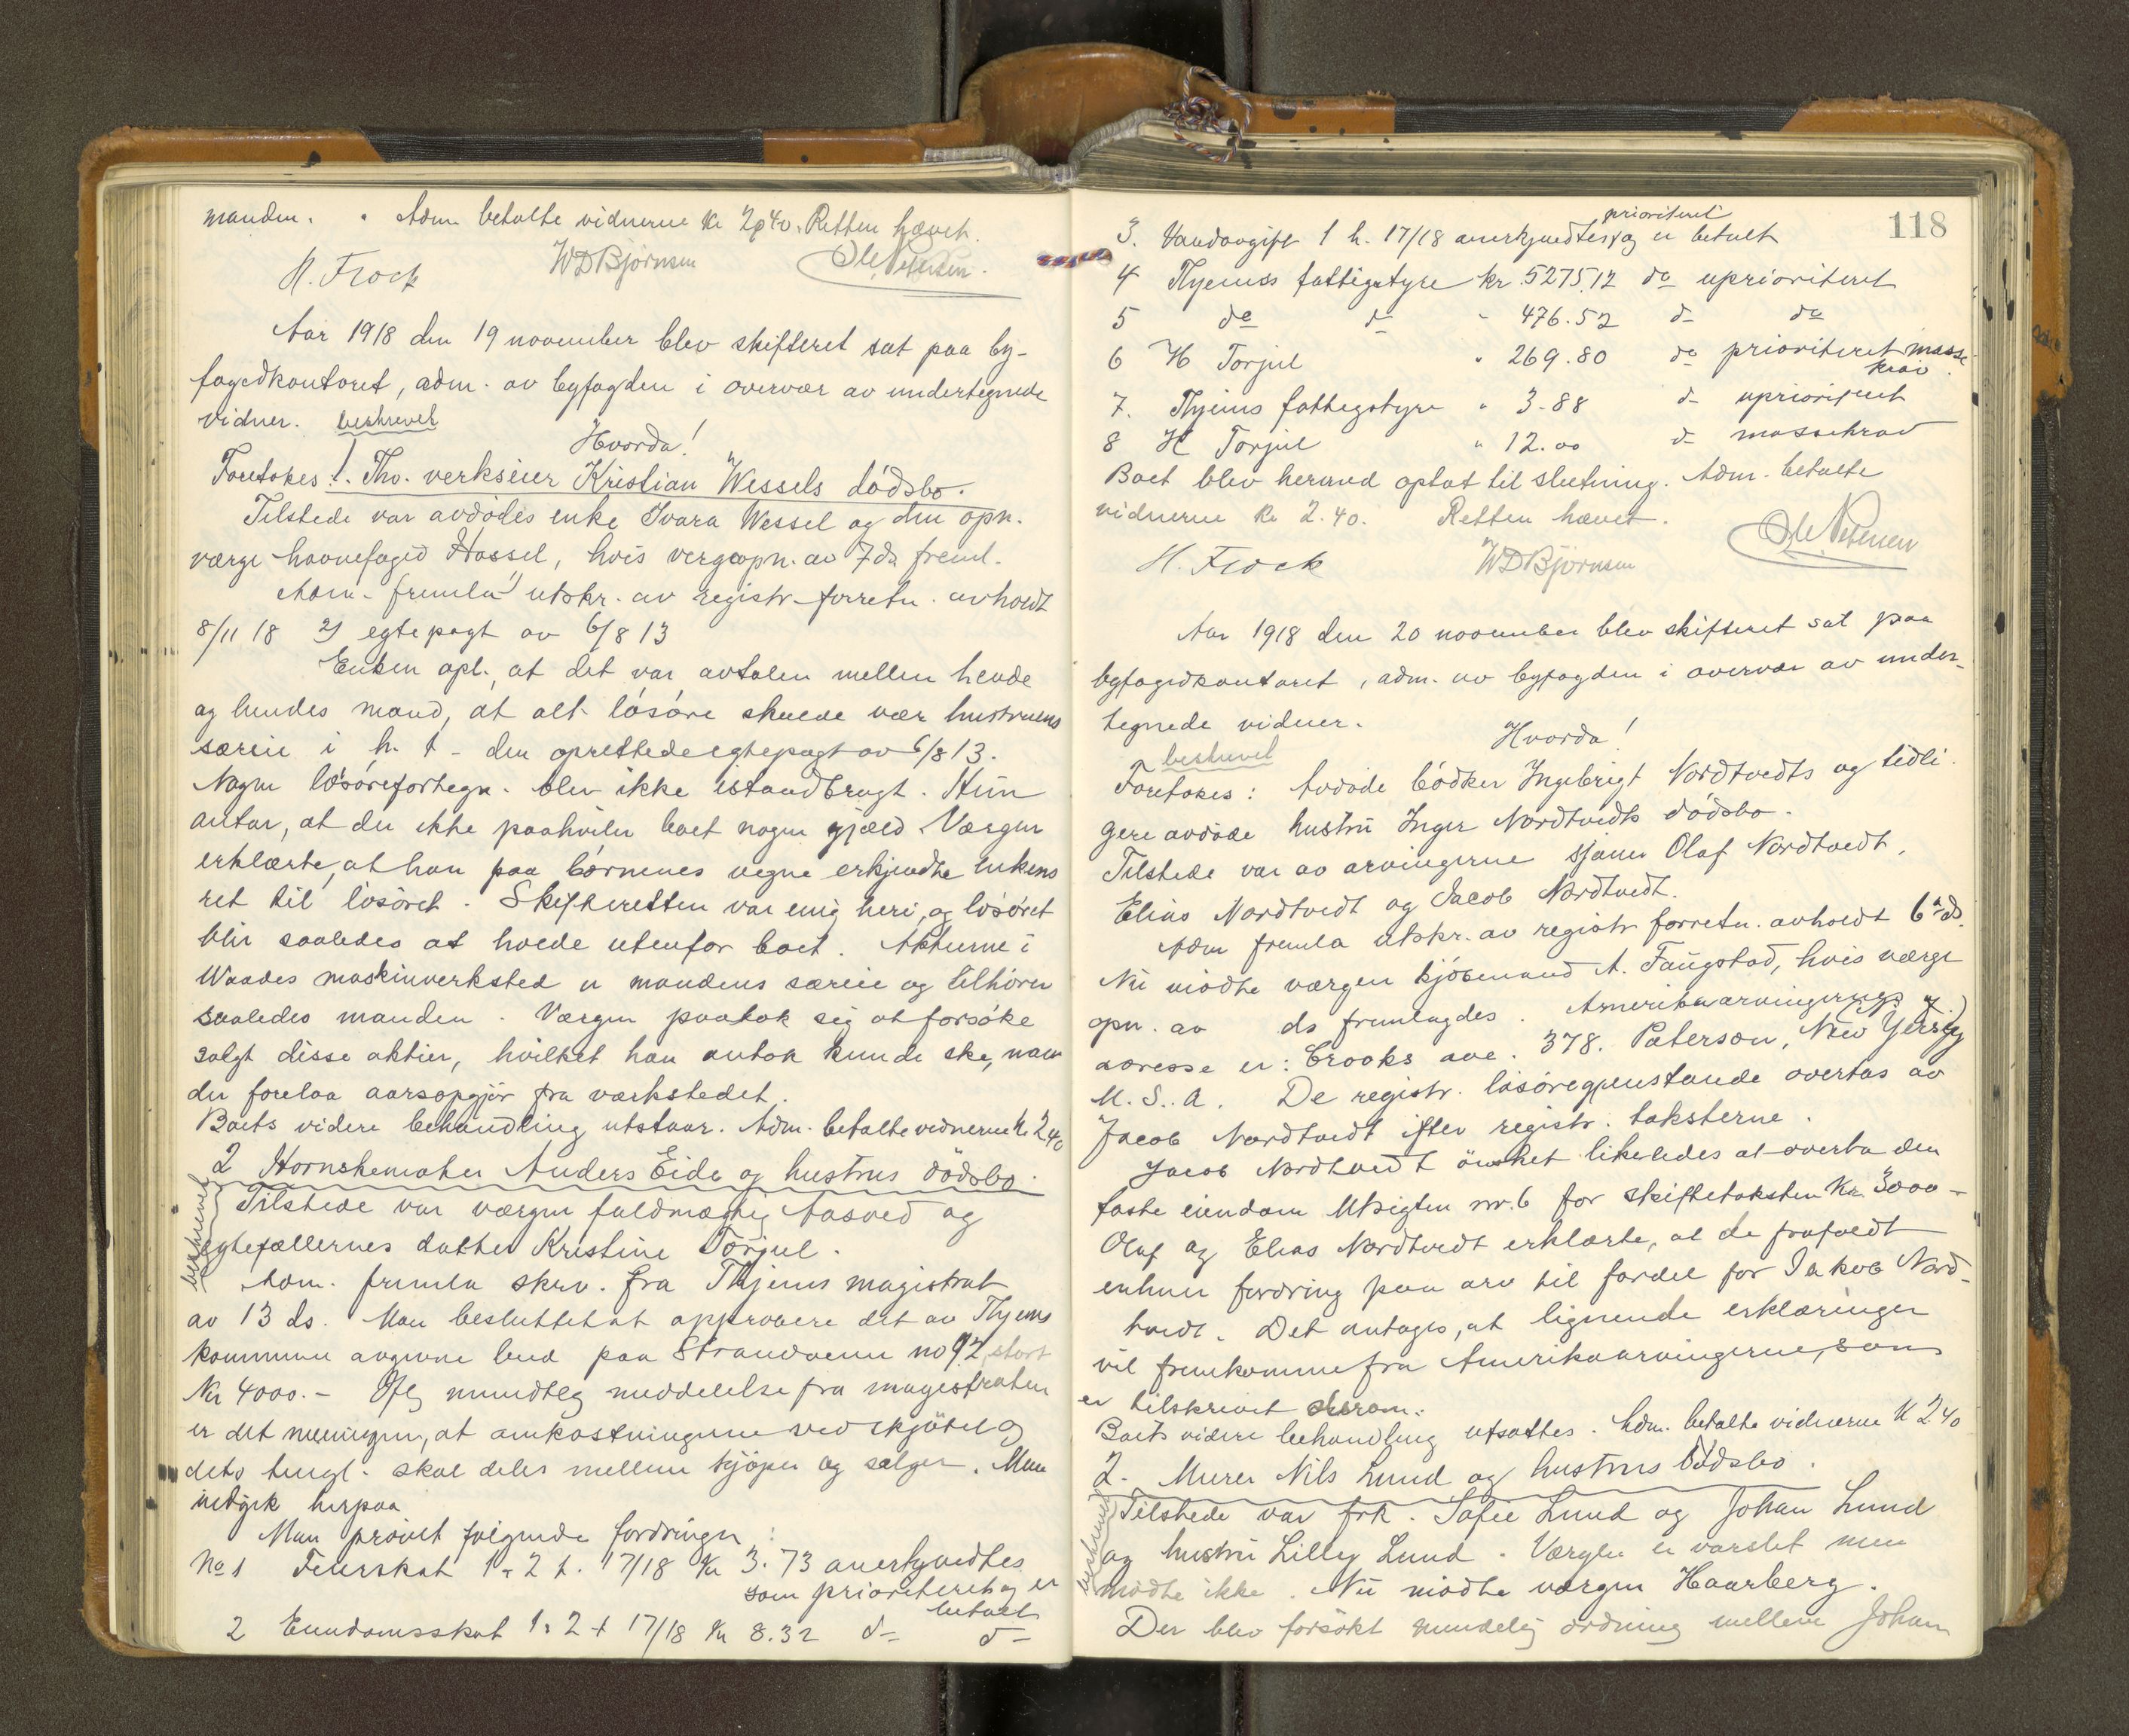 manden. " Adm. betalte vidnerne kr 2,40. Retten hævet.
H. Frock WDBjørnsen Ole Petersen.
Aar 1918 den 19 november blev skifteret sat paa by-
fogedkontoret, adm. av byfogden i overvær av undertegnede
vidner. beskrevet
Hvorda!
Foretokes: 1. Tho. verkseier Kristian Wessels dödsbo.
Tilstede var avdödes enke Ivara Wessel og den opn.
værge havnefoged Hassel, hvis vergeopn. av 7 ds freml.
Adm. fremla 1) utskr. av registr. forretn. avholdt
8/11 18 2) egtepagt av 6/8 13
Enken opl., at det var avtalen mellem hende
og hendes mand, at alt lösöre skulde være hustruens
særeie i h. t. den oprettede egtepagt av 6/8 13.
Nogen lösörefortegn. blev ikke istandbragt. Hun
antar, at der ikke paahviler boet nogen gjæld. Værgen
erklærte, at han paa börnenes vegne erkjendte enkens
ret til lösöret. Skifteretten var enig heri, og lösöret
blir saaledes at holde utenfor boet. Aktierne i
Waades maskinverksted er mandens særeie og tilhörer
saaledes manden. Værgen paatok sig at forsöke
solgt disse aktier, hvilket han antok kunde ske, naar
der forelaa aarsopgjör fra værkstedet.
Boets videre behandling utstaar. Adm. betalte vidnerne kr 2,40
2 Hornskemaker Anders Eide og hustrus dödsbo.
beskrevet
Tilstede var værgen fuldmægtig Aasved og
egtefællernes datter Kristine Torjul.
Adm. fremla skriv. fra Thjems magistrat
av 13 ds. Man besluttet at approbere det av Thjems
kommune avgivne bud paa Strandveien no 92, stort
Kr 4000.- Iflg mundtlig meddelelse fra magistraten
er det meningen, at omkostningerne ved skjötet og
dets tingl. skal deles mellem kjöper og sælger. Man
indgik herpaa.
Man prövet fölgende fordringer:
No 1 Feierskat 1. 2 t. 17/18 kr 3.73 anerkjendtes
som prioriteret og er
betalt
2 Eiendomsskat 1. 2 t 17/18 kr 8.32 do do
118
prioriteret
3. Vandavgift 1 h. 17/18 anerkjendtes og er betalt
4 Thjemss fattigstyre kr. 5275.12 do uprioriteret
5 do do " 476.52 do do
6 H Torjul " 269.80 do prioriteret masse-
krav.
7. Thjems fattigstyre " 3.88 do uprioriteret
8 H Torjul " 12.00 do massekrav
Boet blev hermed optat til slutning. Adm. betalte
vidnerne kr 2.40. Retten hævet.
H. Frock WDBjørnsen Ole Petersen
Aar 1918 den 20 november blev skifteret sat paa
byfogedkontoret, adm. av byfogden i overvær av under-
tegnede vidner.
Hvorda!
beskrevet
Foretokes: Avdöde bödker Ingebrigt Nordtvedts og tidli-
gere avdöde hustru Inger Nordtvedts dödsbo.
Tilstede var av arvingerne sjauer Olaf Nordtvedt,
Elias Nordtvedt og Jacob Nordtvedt.
Adm fremla utskr. av registr. forretn. avholdt 6 ds.
Nu mödte værgen kjöbmand A. Faugstad, hvis værge
opn. av ds fremlagdes. Amerikaarvingernes
adresse er: Crooks ave. 378. Paterson, New Yersey
U. S. A. De registr. lösöregjenstande overtas av
Jacob Nordtvedt efter registr. taksterne.
Jacob Nordtvedt önsket likeledes at overta den
faste eiendom Utsigten nr. 6 for skiftetaksten Kr. 3000.-
Olaf og Elias Nordtvedt erklærte, at de frafaldt
enhver fordring paa arv til fordel for Jakob Nord-
tvedt. Det antages, at lignende erklæringer
vil fremkomme fra Amerikaarvingerne, som
er tilskrevet derom.
Boets videre behandling utsattes. Adm. betalte vidnerne kr 2,40
2. Murer Nils Lund og hustrus dödsbo.
beskrevet
Tilstede var frk. Sofie Lund og Johan Lund
og hustru Lilly Lund. Værgen er varslet men
mödte ikke. Nu mödte værgen Haarberg.
Der blev forsökt mindelig ordning mellem Johan